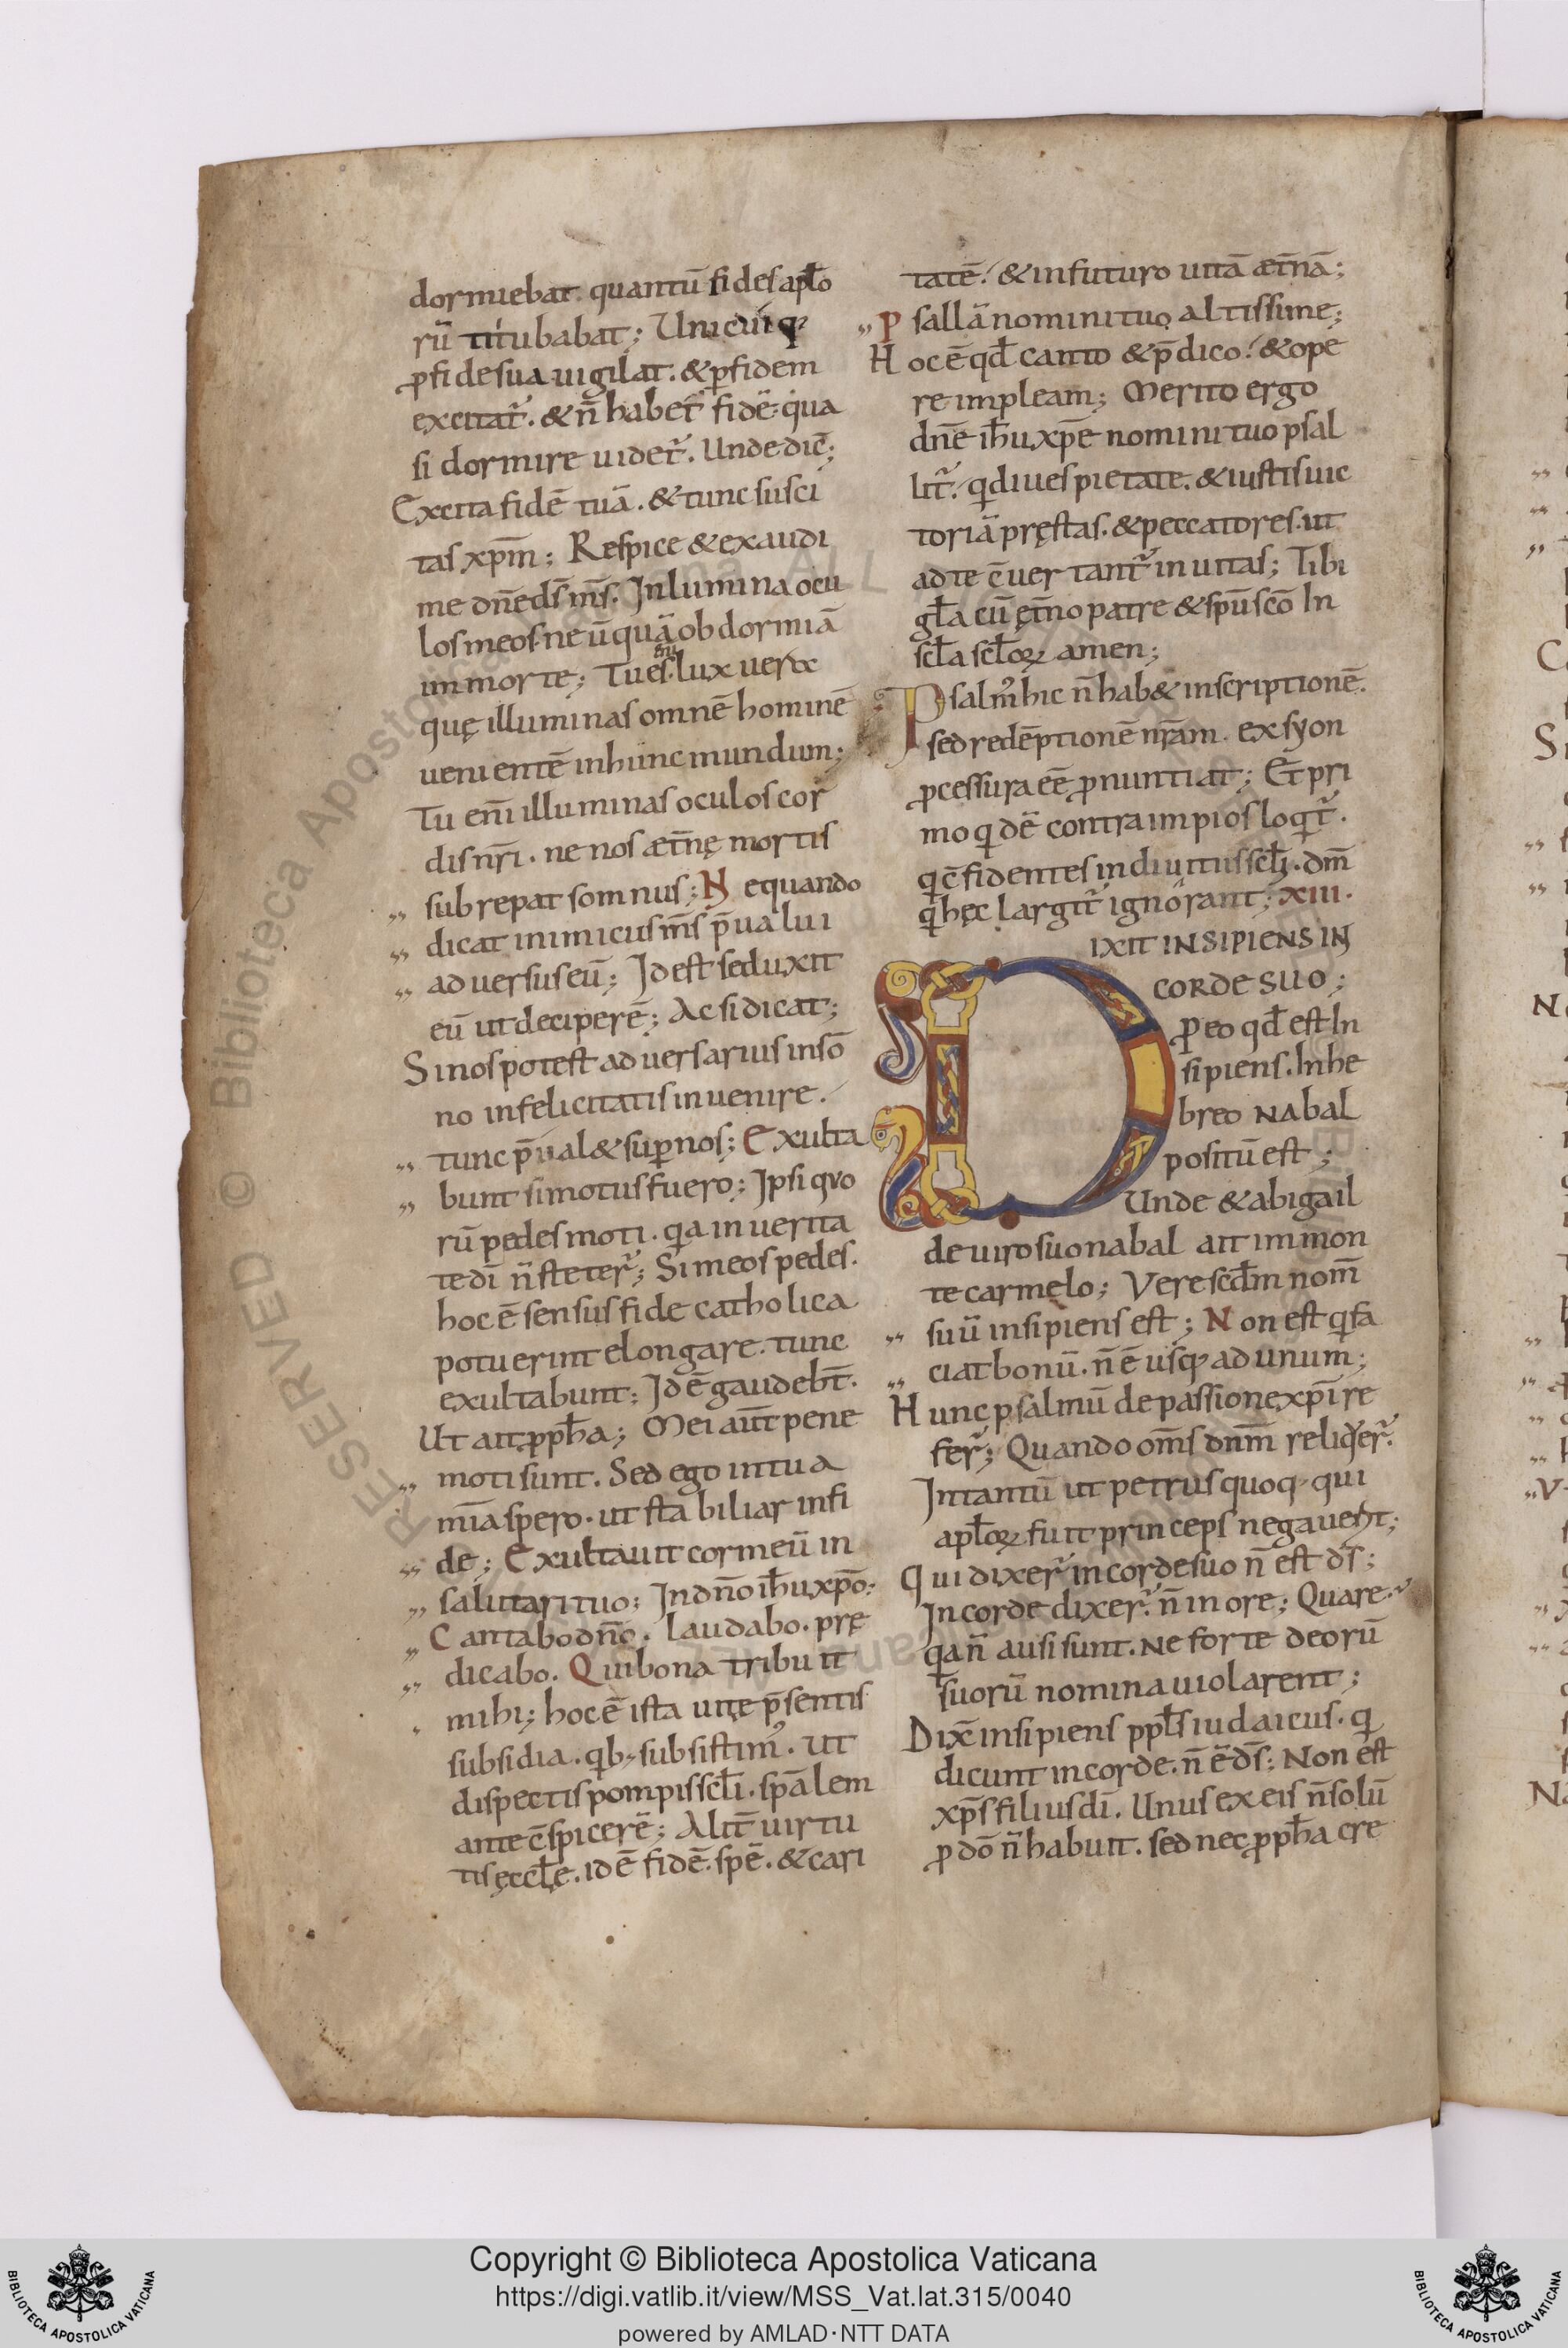 dormiebat. quantū fides apl̄o
rū titubabat; Unicuiq;
ꝓ fide sua uigilat. & ꝑ fidem
excitat̄. & n̄ habet̄ fidē. qua
si dormire uidet̄. Unde dic̄;
Excita fidē tuā. & tunc susci
tas xp̄m; Respice & exaudi
me dn̄e ds̄ ms̄. Inlumina ocu
los meos. ne ūquā obdormiā
in morte; Tu es. lux uera
quę illuminas omnē hominē
uenientē in hunc mundum;
Tu eni illuminas oculos cor
dis nr̄i. ne nos æt̄nę mortis
subrepat somnus; Nequando
dicat inimicus ms̄ p̄ualui
aduersus eū; Id est seduxit
eū ut deciperē; Ac si dicat;
Si nos potest aduersarius in sō
no infelicitatis inuenire.
tunc p̄ual& suꝑ nos; Exulta
bunt si motus fuero; Ipsi quo
rū pedes moti. qa in uerita
te dī n̄ steter̄; Si meos pedes.
hoc ē sensus fide catholica
potuerint elongare. tunc
exultabunt; Id ē gaudebt̄.
Ut ait pph̄a; Mei aūt pene
moti sunt. Sed ego in tua
mīa spero. ut stabiliar in fi
de; Exultauit cor meū in
salutari tuo; In dn̄o ih̄u xp̄o.
Cantabo dn̄o. laudabo. prę
dicabo. Qui bona tribuit
mihi; hoc ē ista uitę p̄sentis
subsidia. qb; subsistim᷒. Ut
dispectis pompis scl̄i. sp̄alem
ante c̄spicerē; Alit̄ uirtu
tis ęccl̄ę. id ē fidē. spē. & cari
tatē. & in futuro uitā æt̄nā;
Psallā nomini tuo altissime;
Hoc ē qd̄ canto & p̄dico. & ope
re impleam; Merito ergo
dn̄e ih̄u xp̄e nomini tuo psal
lit̄. qi diues pietate. & iustis uic
toriā pręstas. & peccatores. ut
ad te c̄uertant̄ inuitas; Tibi
gl̄a cū ęt̄no patre & sp̄u scō In
scl̄a scl̄oꝝ amen;
Psalm᷒ hic n̄ hab& inscriptionē.
sed redēptionē nr̄am. ex syon
ꝓcessura eē ꝓnuntiat; Et pri
mo qidē contra impios loqit̄.
qi c̄fidentes in diuitiis scl̄i. dm̄
qi hęc largit̄ ignorant; XIII.
DIXIT INSIPIENS IN
CORDE SUO;
ꝓ eo qd̄ est In
sipiens. In he
breo NAbal
positū est;
Unde & abigail
de uiro suo nabal ait in mon
te carmelo; Vere scd̄m nom̄
suū insipiens est; Non est qi fa
ciat bonū. n̄ ē usq; ad unum;
Hunc psalmū de passione xp̄i re
fer̄; Quando om̄s dn̄m reliqer̄.
Intantū ut petrus quoq; qui
apl̄oꝝ fuit princeps negauerit;
Qui dixer̄ in corde suo n̄ est ds̄;
In corde dixer̄. n̄ in ore; Quare.
qa n̄ ausi sunt. Ne forte deorū
suorū nomina uiolarent;
Dix̄ insipiens ppl̄s iudaicus. qi
dicunt in corde. n̄ ē ds̄; Non est
xp̄s filius dī. Unus ex eis n̄ solū
ꝓ dō n̄ habuit. sed nec ꝓph̄a cre
Copyright © Biblioteca Apostolica Vaticana
https://digi.vatlib.it/view/MSS_Vat.lat.315/0040
powered by AMLAD·NTT DATA
BIBLIOTECA APOSTOLICA VATICANA
BIBLIOTECA APOSTOLICA VATICANA